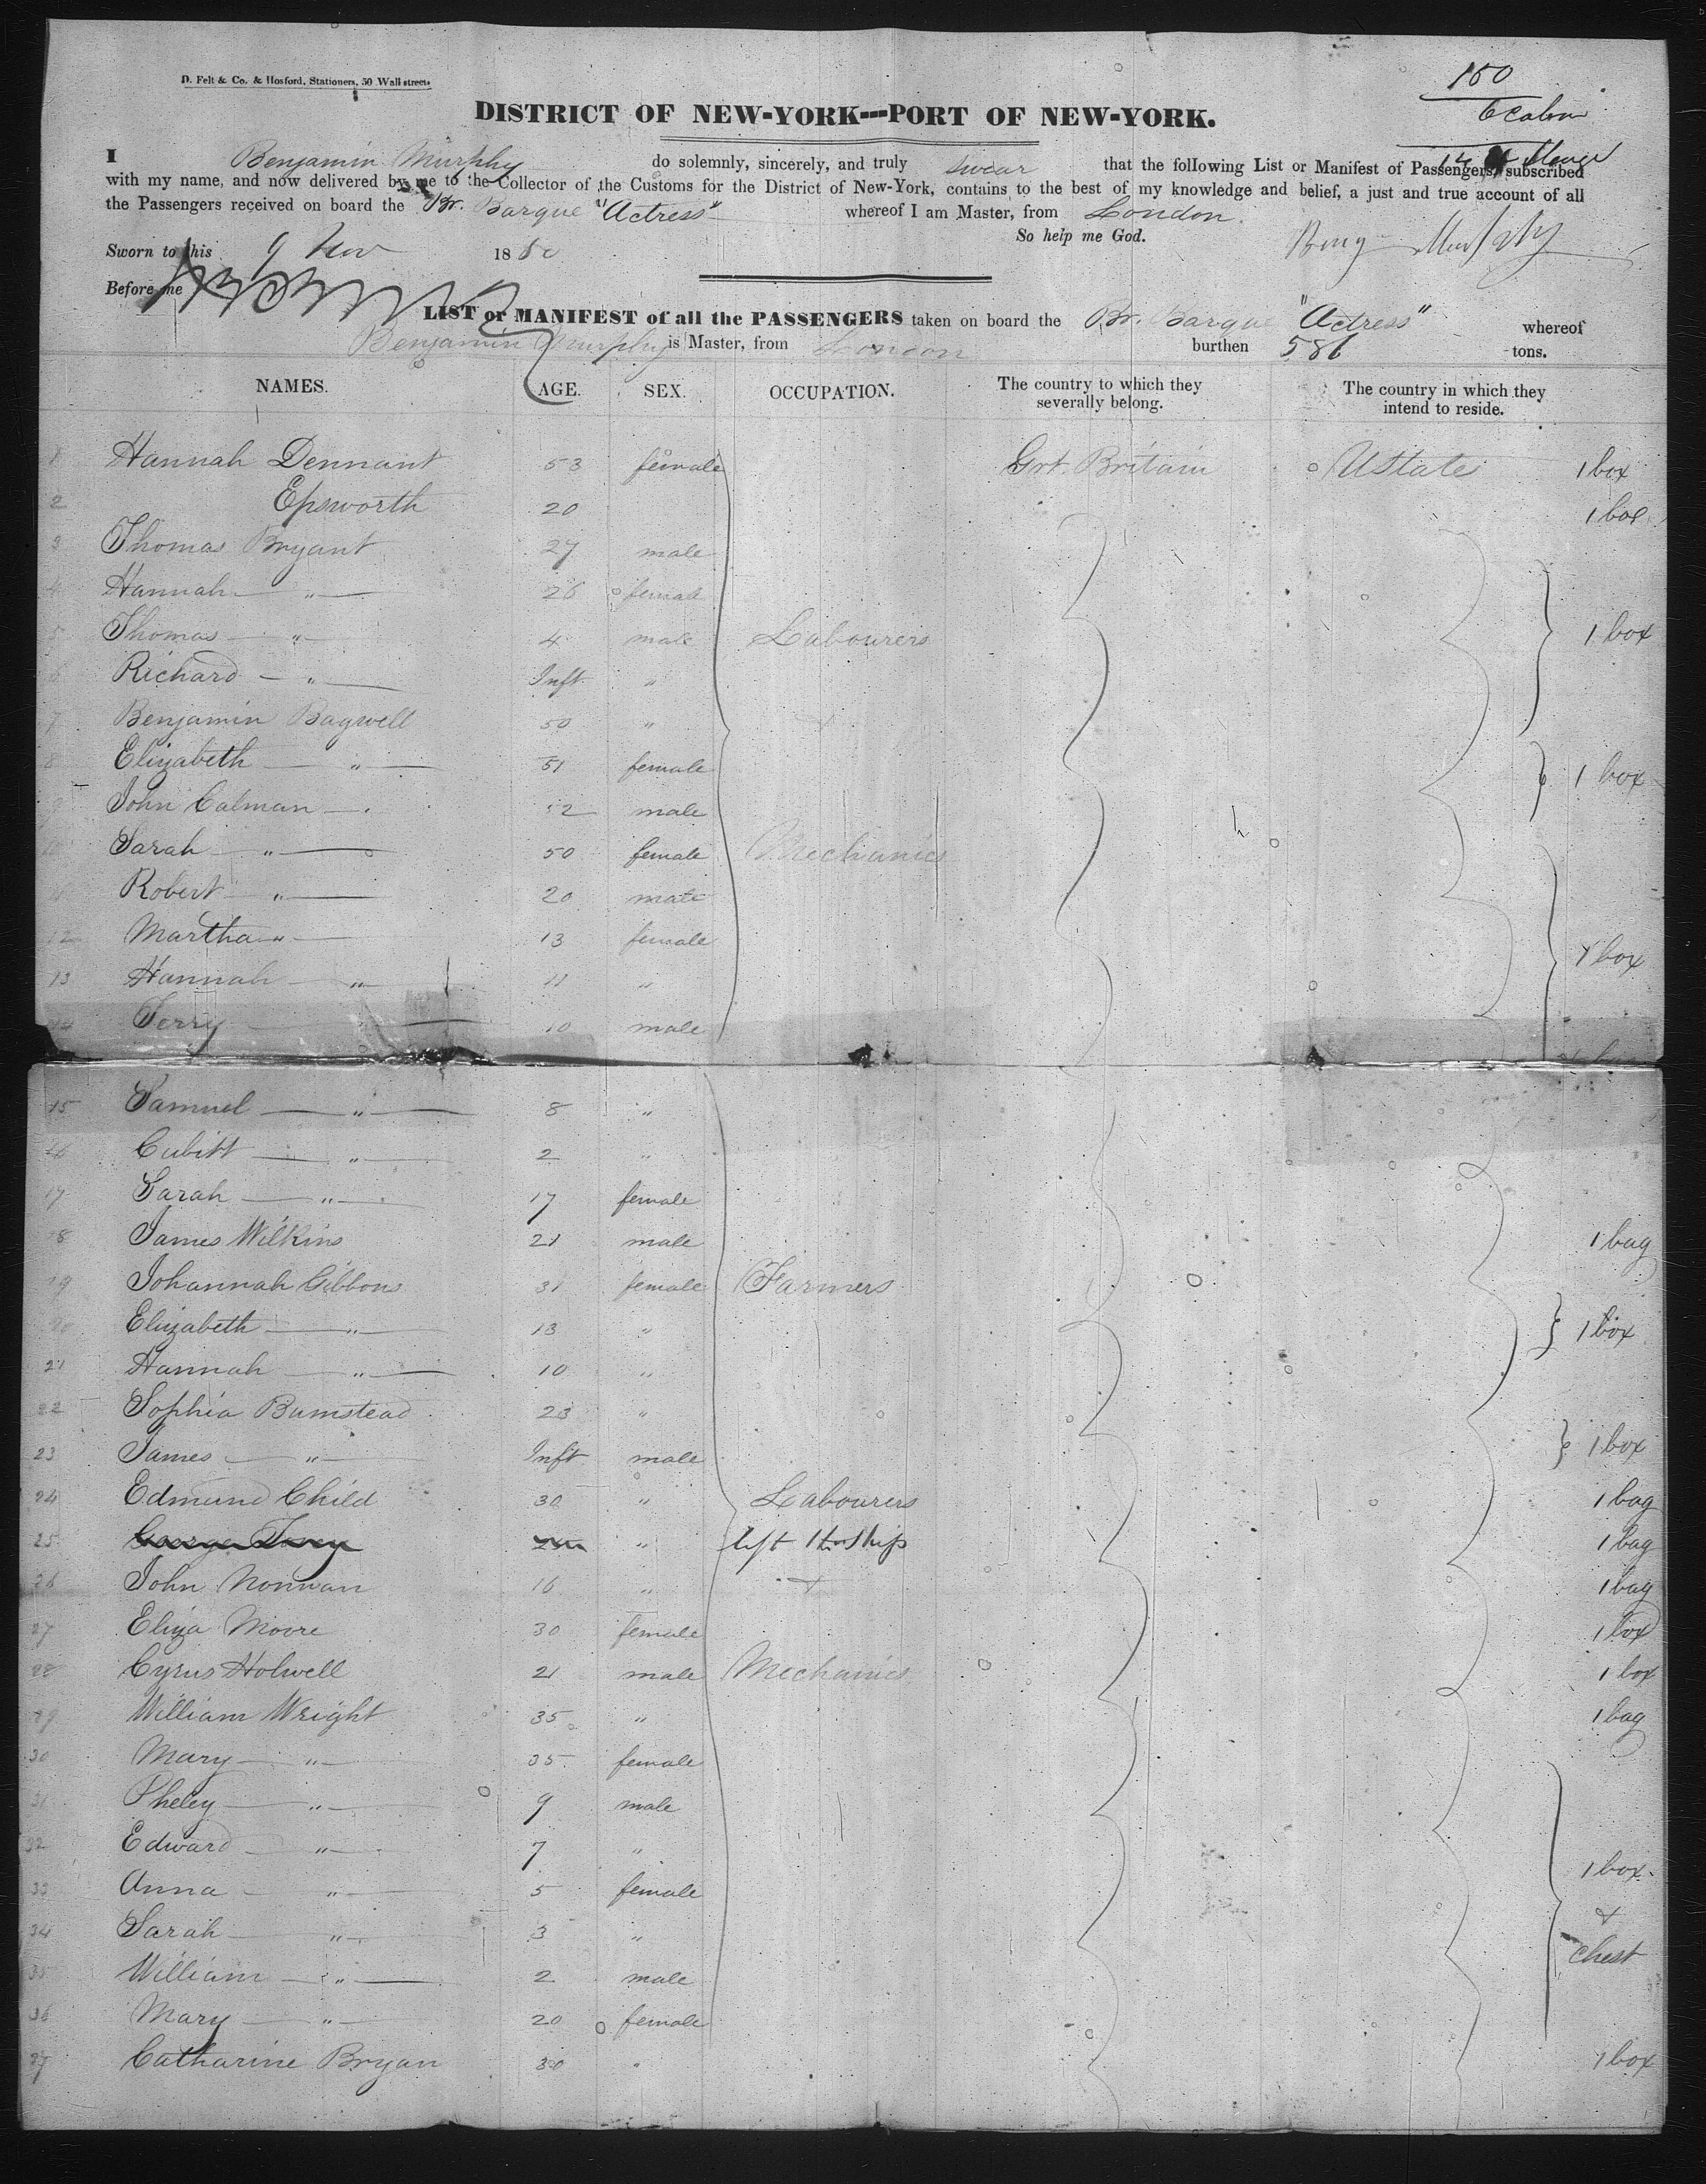 D. Felt & Co. & Hosford, Stationers, 50 Wall street.
150
6 cabin
DISTRICT OF NEW-YORK---PORT OF NEW-YORK.
I Benjamin Murphy do solemnly, sincerely, and truly swear that the following List or Manifest of Passengers, subscribed
with my name, and now delivered by me to the Collector of the Customs for the District of New-York, contains to the best of my knowledge and belief, a just and true account of all
the Passengers received on board the Br. Barque "Actress" whereof I am Master, from London.
So help me God.
Sworn to this 9 Nov 1850 Benj Murphy
Before me
LIST or MANIFEST of all the PASSENGERS taken on board the Br. Barque "Actress" whereof
Benjamin Murphy is Master, from London burthen 586 tons.
NAMES. AGE. SEX. OCCUPATION. The country to which they severally belong. The country in which they intend to reside.
1 Hannah Dennant 53 female Grt. Britain UStates 1 box
2 Epsworth 20 1 box
3 Thomas Bryant 27 male
4 Hannah " 26 female
5 Thomas " 4 male Labourers 1 box
6 Richard " Inft "
7 Benjamin Bagwell 50 " +
8 Elizabeth " 51 female 1 box
9 John Calman 52 male
10 Sarah " 50 female Mechanics
11 Robert " 20 male
12 Martha " 13 female
13 Hannah " 11 " 1 box
14 Terry 10 male
15 Samuel " 8 "
16 Cubitt " 2 "
17 Sarah " 17 female
18 James Wilkins 21 male 1 bag
19 Johannah Gibbons 31 female Farmers
20 Elizabeth " 13 " 1 box
21 Hannah " 10 "
22 Sophia Bumstead 23 "
23 James " Inft male 1 box
24 Edmund Child 30 " Labourers 1 bag
25 George " left the Ship 1 bag
26 John Norman 16 " + 1 bag
27 Eliza Moore 30 female 1 box
28 Cyrus Holwell 21 male Mechanics 1 box
29 William Wright 35 " 1 bag
30 Mary " 35 female
31 Sheley " 9 male
32 Edward " 7 "
33 Anna " 5 female 1 box
34 Sarah " 3 " +
35 William " 2 male chest
36 Mary " 20 female
37 Catharine Bryan 30 " 1 box